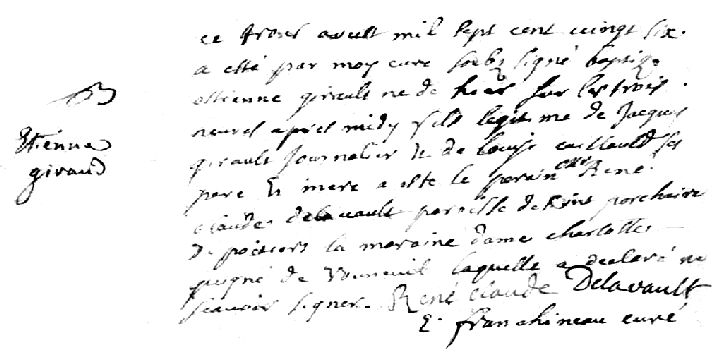 B
Etienne
giraud
ce trois aoult mil sept cent vingt six
a esté par moy curé soubz signé baptizé
estienne girault né de hier sur les trois
heures apres midy fils legitime de Jacques
girault Journalier & de louise caillault ses
pere Et mere a esté le parain Mr René
claude delavault paroisse de St porchaire
de poitiers la maraine dame charlotte
de vouneuil laquelle a declaré ne
scavoir signer. René Claude Delavault
franchineau curé